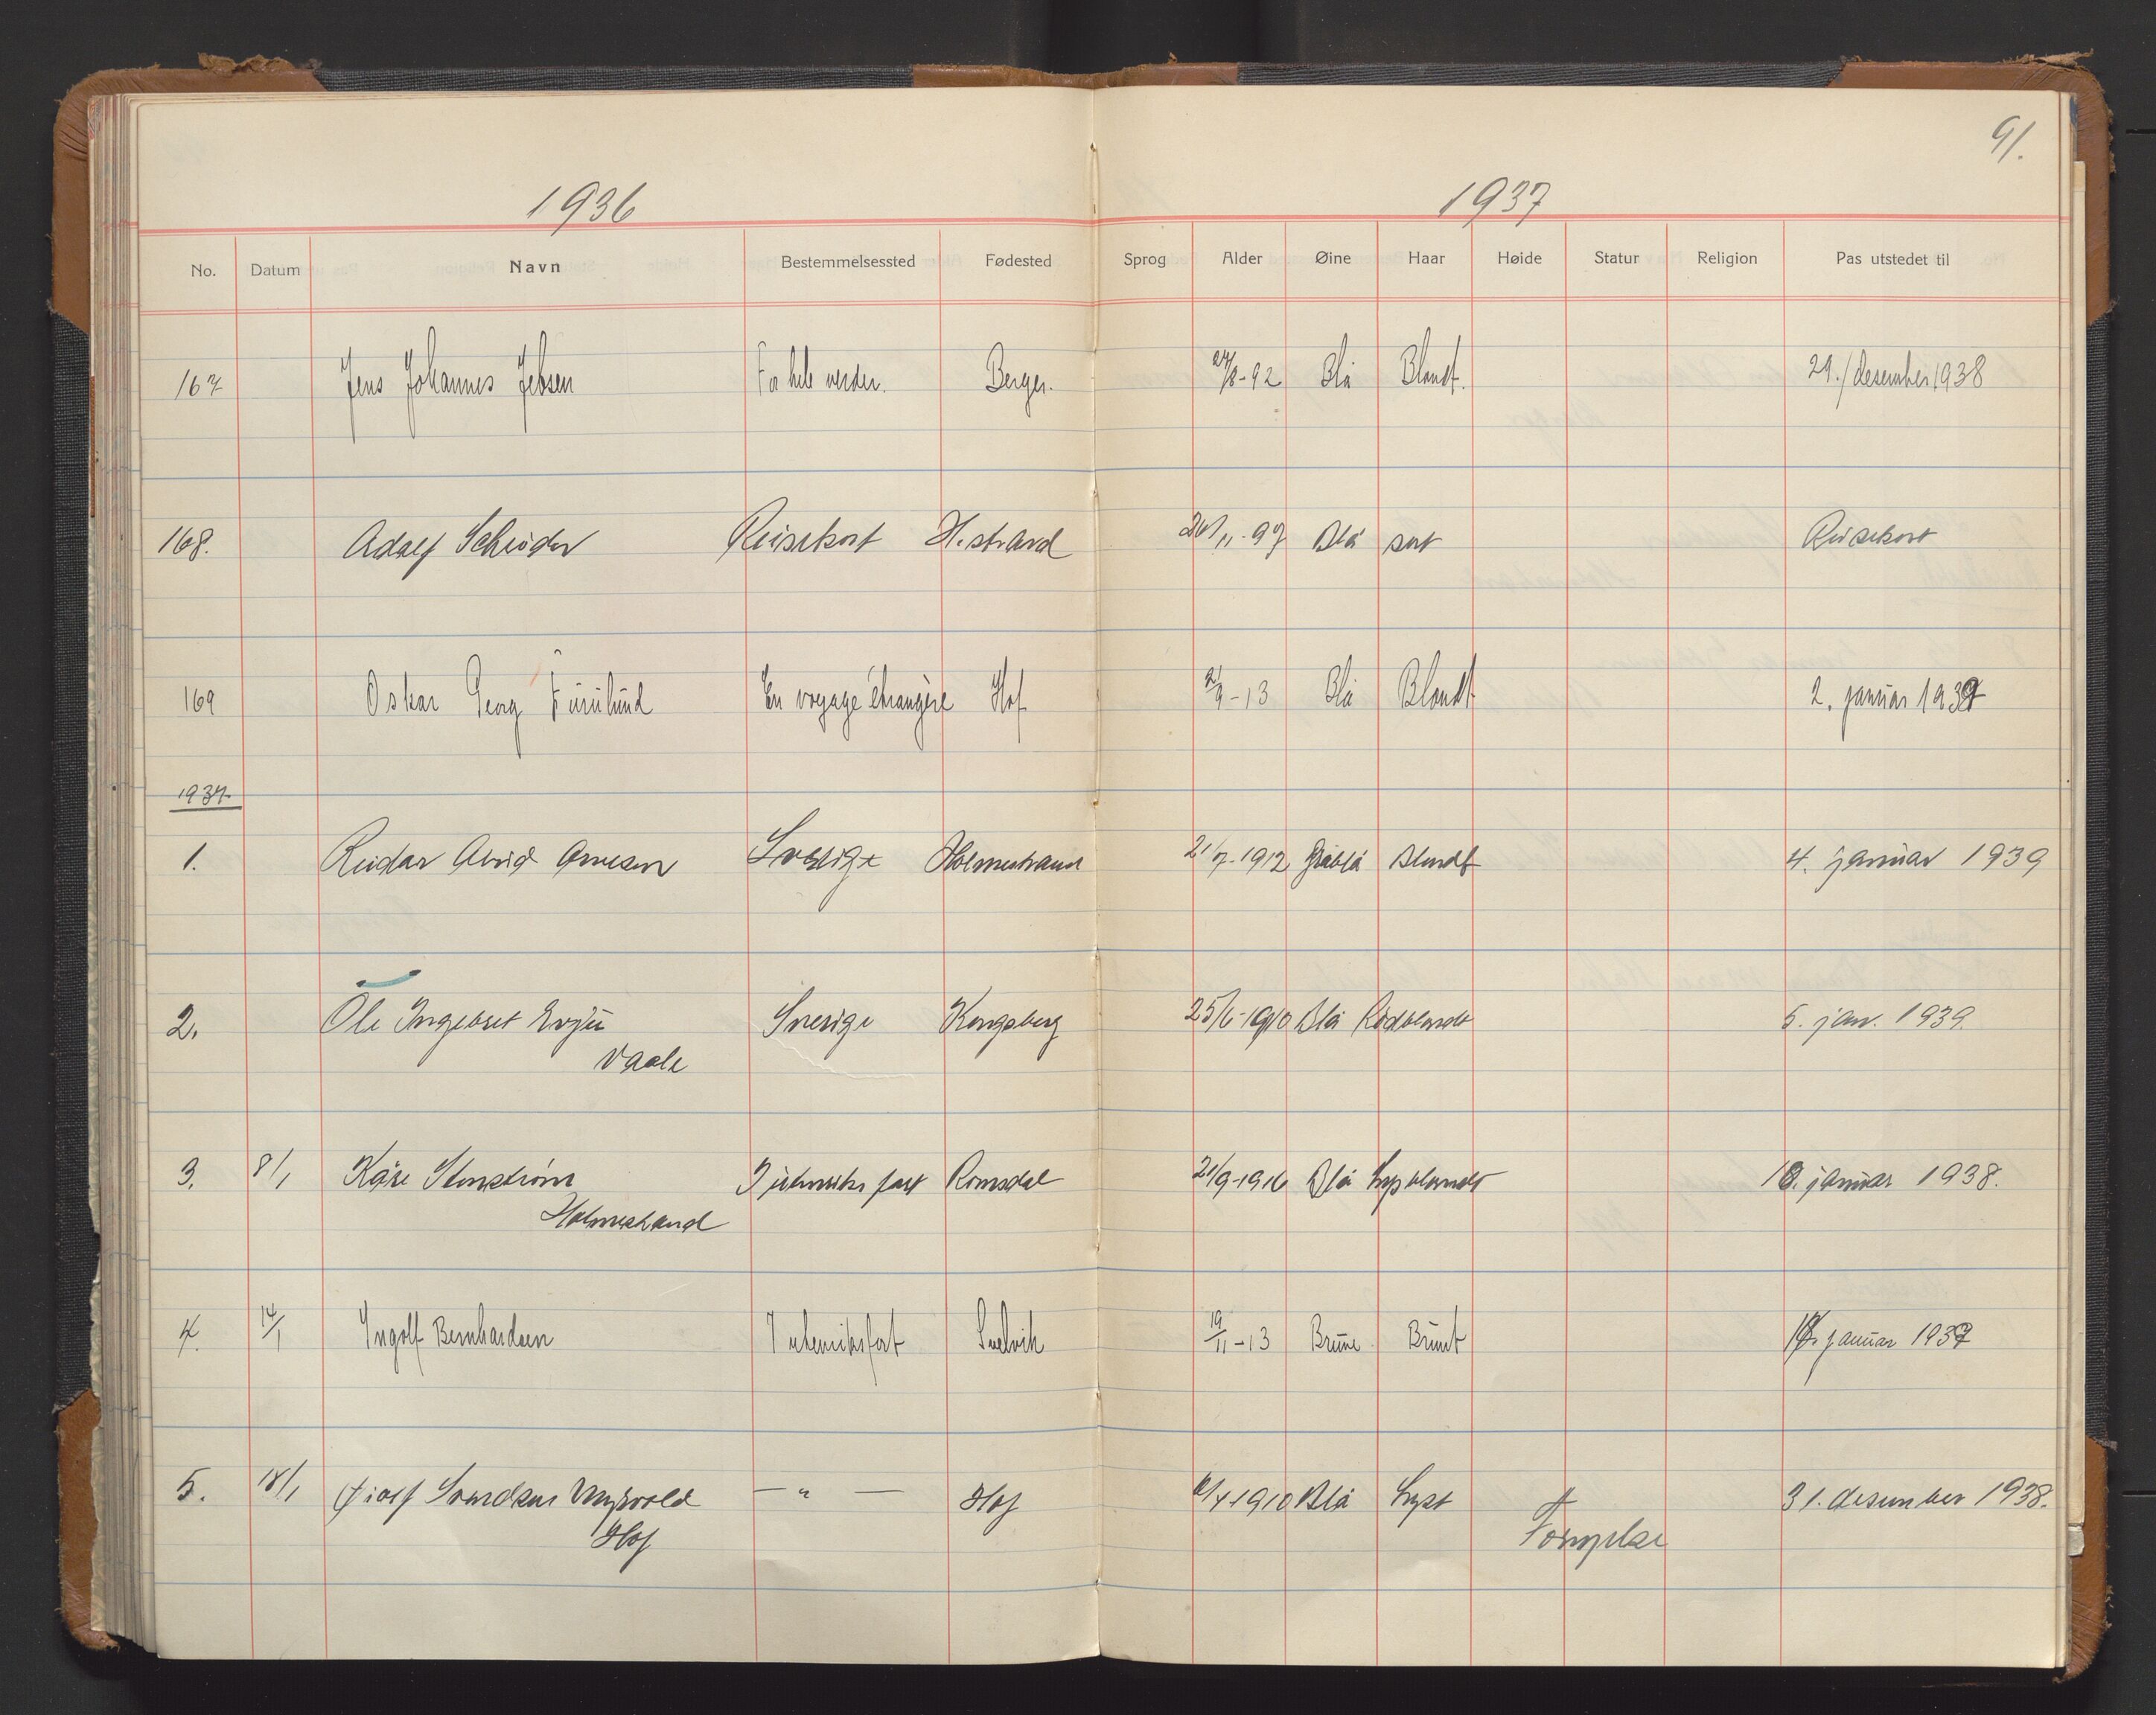 91.
1936 1937
No. Datum Navn Bestemmelsessted Fødested Sprog Alder Øine Haar Høide Statur Religion Pas utstedet til
167 Jens Johannes Jebsen For hele verden. Berger. 27/8-92 Blå Blondt. 29./desember 1938
168. Adolf Schrøder Reisekort H.strand 11-97 Blå sort Reisekort
169 Oskar Georg En voyage étrangère Hof 2/9-13 Blå Blondt 2. januar 1939
1937
1. Reidar Arvid Arnesen Sverige Holmestrand 21/7-1912 Gråblå Blondt 4. januar 1939
2. Ole Ingebret Evju Sverige Kongsberg 25/6-1910 Blå Rødblondt 5. jan. 1939.
Vaale
3. 8/1 Kåre Stenstrøm Jutenriksfart Romsdal 21/9-1916 Blå Lysblondt 18. januar 1938.
Holmestrand
4. 14/1 Ingolf Bernhardsen Jutenriksfart Svelvik 19/11-13 Brune Brunt januar 1937
5. 18/1 Svendsen Myrvold — " — Hof 1910 Blå Lyst 31. desember 1938.
Hof Fornyelse